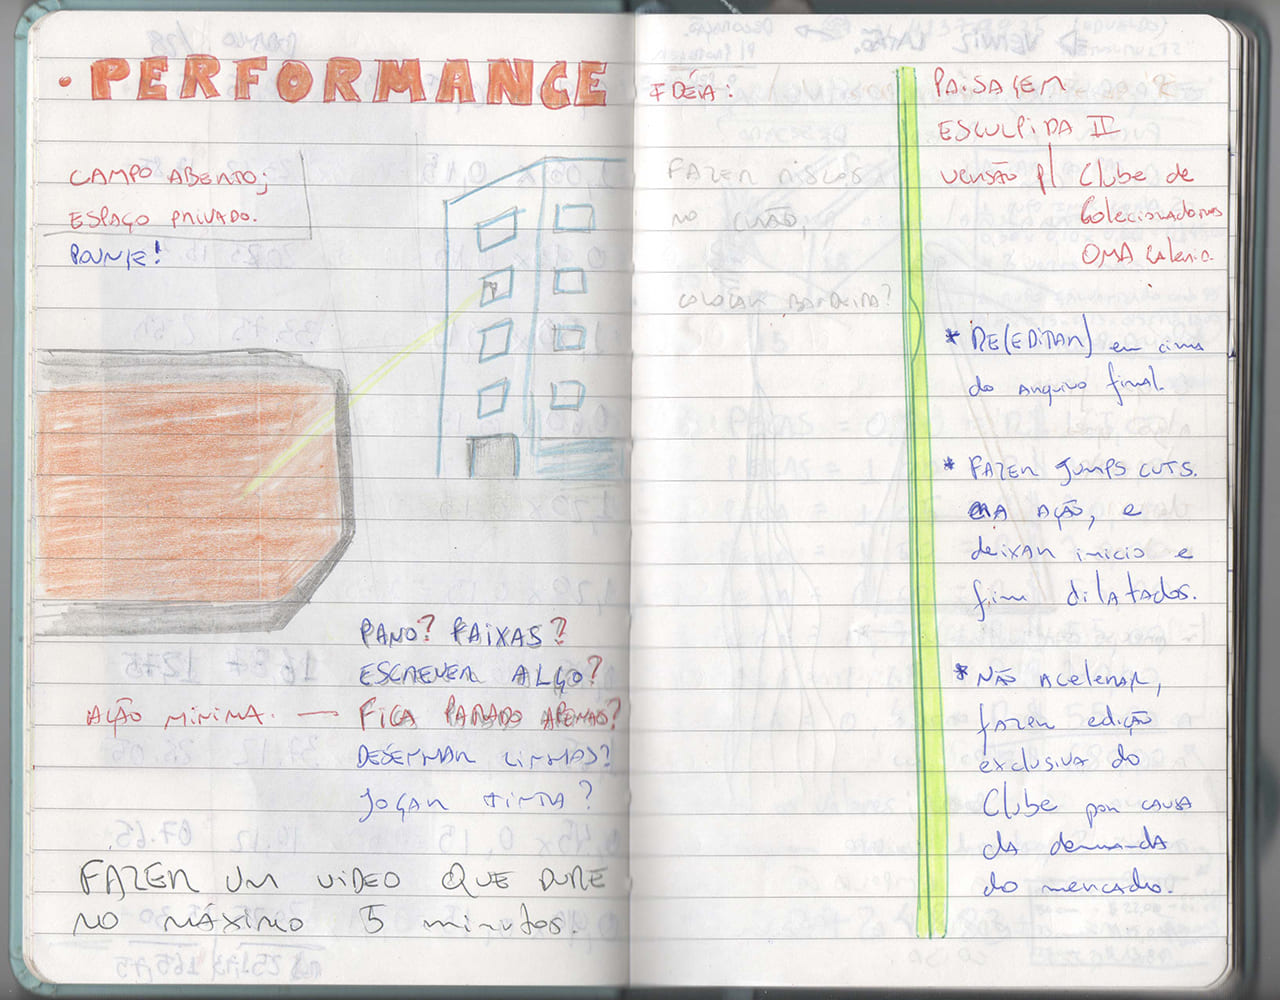 • PERFORMANCE
CAMPO ABERTO;
ESPAÇO PRIVADO.
PANO? FAIXAS?
ESCREVER ALGO?
AÇÃO MÍNIMA. — FICA PARADO APENAS?
DESENHAR LINHAS?
JOGAR TINTA?
FAZER UM VIDEO QUE DURE
NO MÁXIMO 5 minutos.
IDÉIA:
FAZER RISCOS
NO CHÃO,
COLOCAR BANDEIRA?
PAISAGEM
ESCULPIDA II
versão p/ Clube de
Colecionadores
OMA Galeria.
* RE(EDITAR) em cima
do arquivo final.
* FAZER JUMPS CUTS.
NA AÇÃO, e
deixar inicio e
fim dilatados.
* NÃO acelerar,
fazer edição
exclusiva do
Clube por causa
da demanda
do mercado.